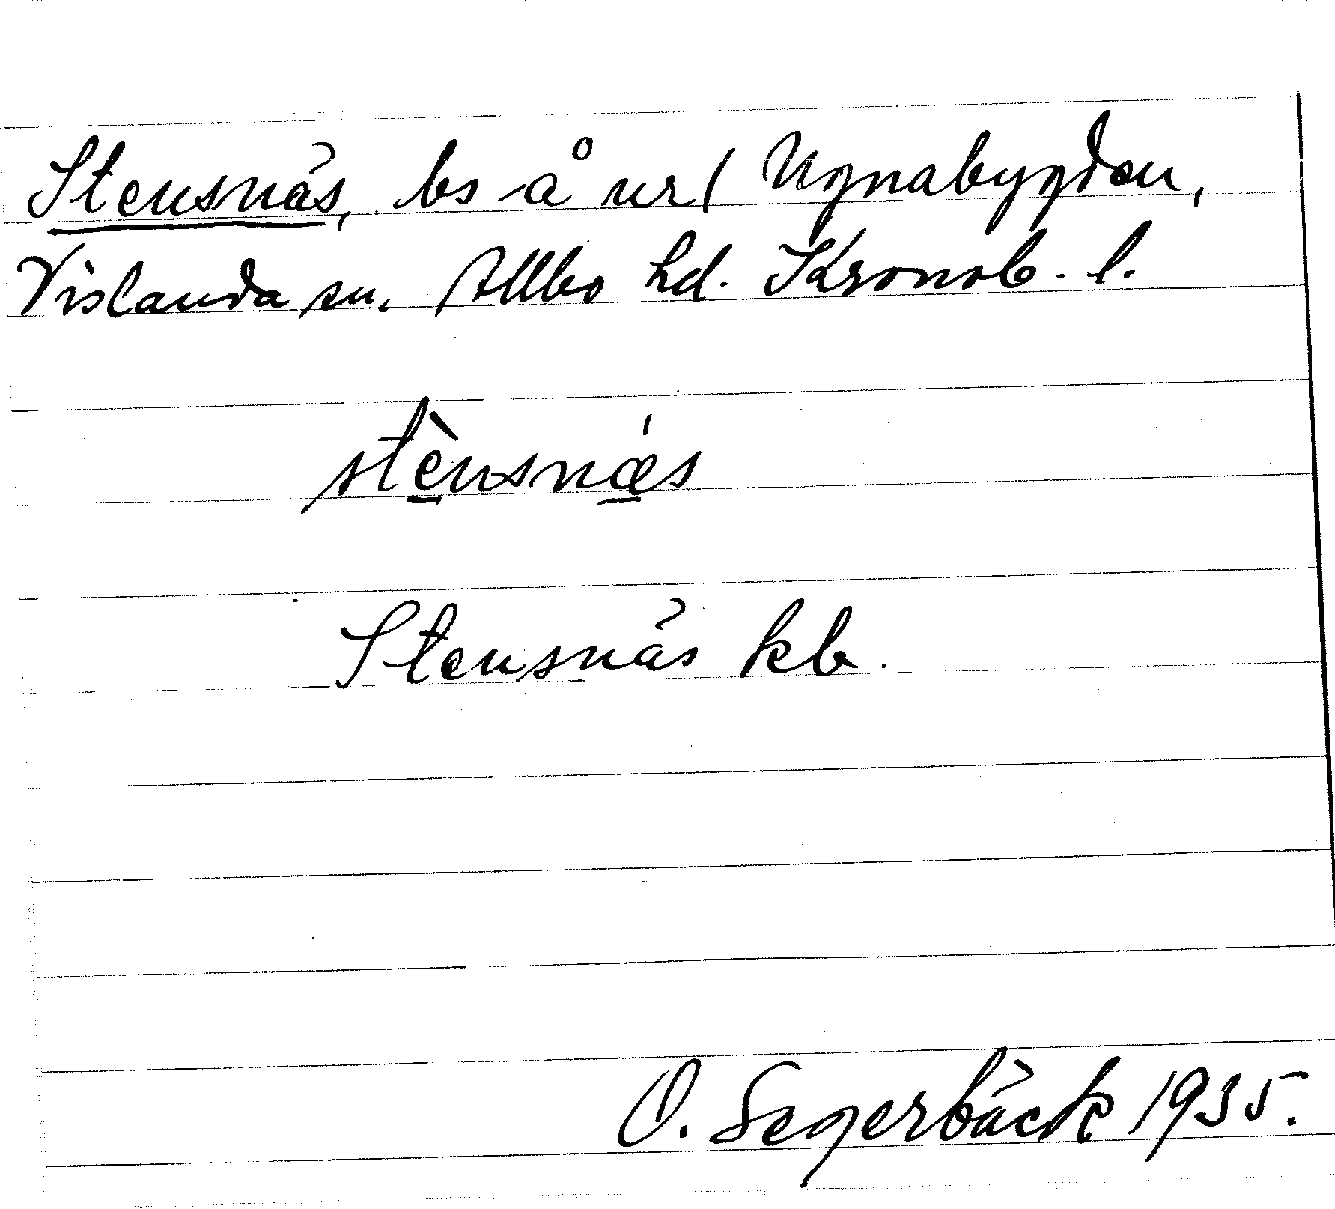 Stensnäs, bs å nr 1 Ugnabygden,
Vislanda sn. Allbo hd. Kronob. l.
stènsnæ̍s
Stensnäs kb.
O. Segerbäck 1935.